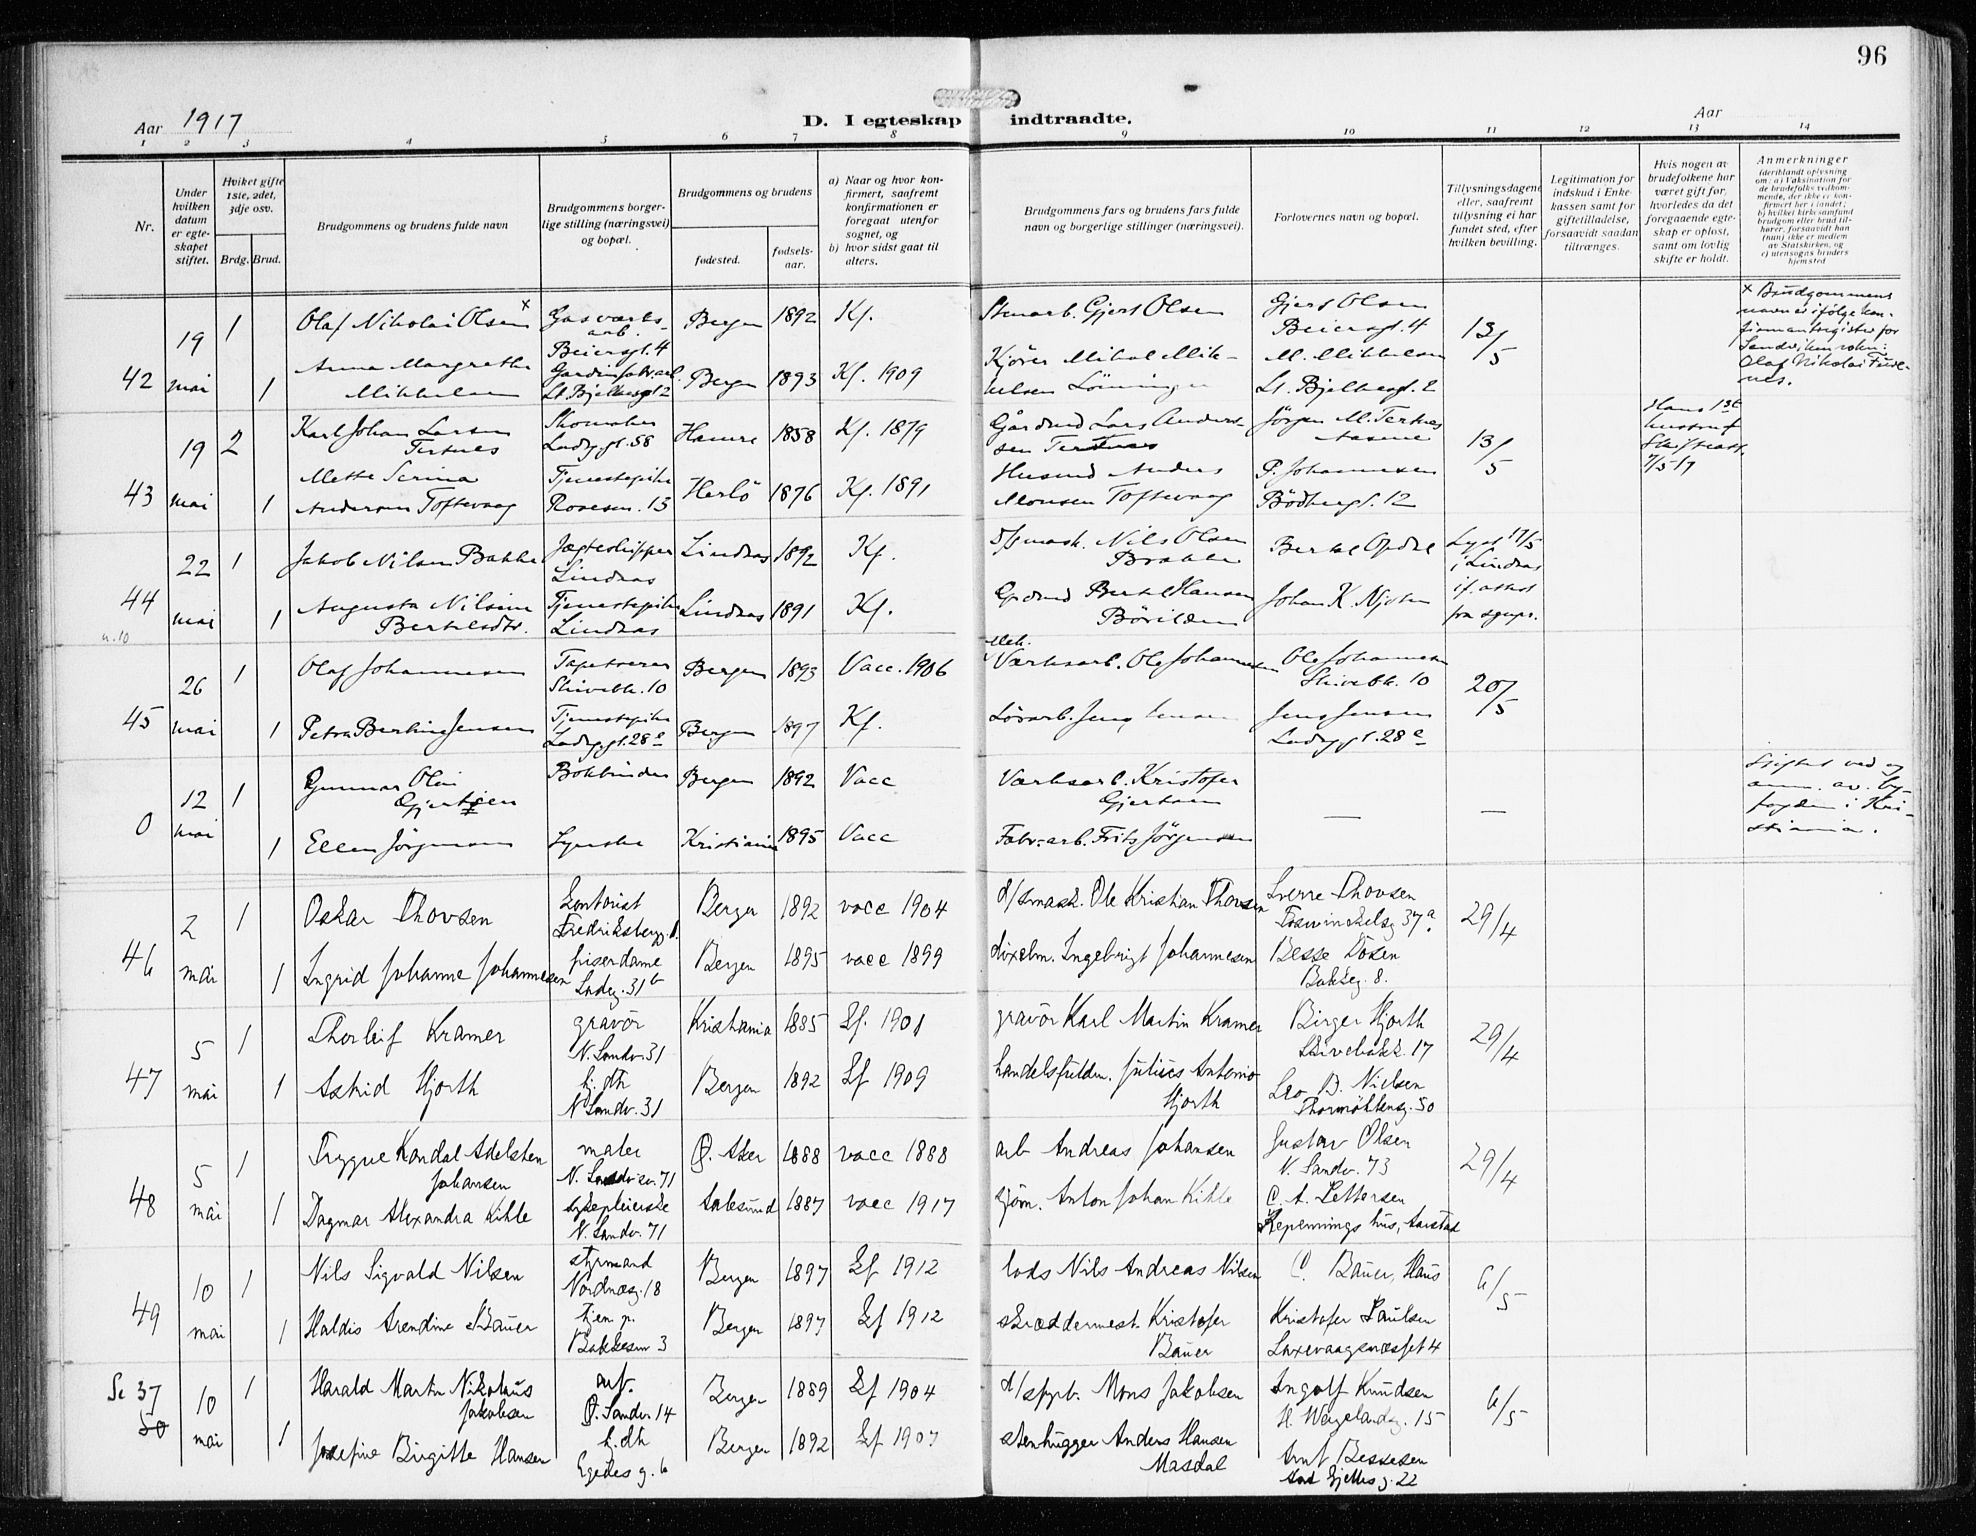 96
Aar 1917
D. I egteskap indtraadte.
Aar
1 2 3 4 5 6 7 8 9 10 11 12 13 14
Nr.
Under hvilken datum er egteskapet stiftet.
Hvilket gifte 1ste, 2det, 3dje osv.
Brdg. Brud.
Brudgommens og brudens fulde navn
Brudgommens borgerlige stilling (næringsvei) og bopæl.
Brudgommens og brudens
fødested.
fødselsaar.
a) Naar og hvor konfirmert, saafremt konfirmationen er foregaat utenfor sognet, og
b) hvor sidst gaat til alters.
Brudgommens fars og brudens fars fulde navn og borgerlige stillinger (næringsvei).
Forlovernes navn og bopæl.
Tillysningsdagene eller, saafremt tillysning ei har fundet sted, efter hvilken bevilling.
Legitimation for indskud i Enkekassen samt for giftetilladelse, forsaavidt saadan tiltrænges.
Hvis nogen av brudefolkene har været gift før, hvorledes da det foregaaende egteskap er opløst, samt om lovlig skifte er holdt.
Anmerkninger
(deriblandt oplysning om: a) Vaksination for de brudefolks vedkommende, der ikke er konfirmert her i landet; b) hvilket kirkesamfund brudgom eller brud tilhører, forsaavidt han (hun) ikke er medlem av Statskirken, og c) utensogns bruders hjemsted
42 19 mai 1 Olaf Nikolai Olsen x Gasverksarb. Beiersgt. 4 Bergen 1892 Kf. Stenarb. Gjert Olsen Gjert Olsen Beiersgt. 4 13/5
x Brudgommens navn er ifølge konfirmantregister for Sandviken sokn: Olaf Nikolai
1 Anna Margrethe Mikkelsen Gardinfabr.arb. Bergen 1893 Kf. 1909 Kjører Mikal Mikkelsen Lönningen M. Mikkelsen
43 19 mai 2 Karl Johan Larsen Tertnes Skomaker Ladeg.gt. 58 Hamre 1858 Kf. 1879 Gårdmd Lars Andersen Tertnes Jörgen M. Tertnes 13/5
Hans 1ste hustru † Skifteatt. 7/5 17
1 Mette Serina Andersen Toftevaag Tjenestepike Rosesm. 13 Herlö 1876 Kf. 1891 Husmd Anders Monsen Toftevaag P. Johannesen Bödkergt. 12
44 22 mai 1 Jakob Nilsen Bakke Jægteskipper Lindaas Lindaas 1892 Kf. Nils Olsen Bakke Bertel Opdal Lyst 17/5 i Lindaas if. attest fra sognpr.
u. 10
1 Augusta Nilsine Bertelsdtr. Tjenestepike Lindaas Lindaas 1891 Kf. Gårdmd Bertel Hansen Johan K.
45 26 mai 1 Olaf Johannesen Tapetserer Skivebk. 10 Bergen 1893 Vacc. 1906 Mek. Værksarb. Ole Johannesen Ole Johannesen Skivebk. 10 20/5
1 Petra Bertine Jensen Tjenestepike Ladeg.gt. 28 e Bergen 1897 Kf. Jens Jensen Jens Jensen Ladeg.gt. 28 e
0 12 mai 1 Gunnar Olai Gjertsen Bokbinder Bergen 1892 Vacc Værksarb. Kristofer Gjertsen — —
Stiftet ved og anm. av byfogden i Kristiania.
1 Ellen Jörgensen Syerske Kristiania 1895 Vacc Fabr.arb. Fritz Jörgensen
46 2 mai 1 Oskar Thovsen kontorist Fredriksbergg. Bergen 1892 vacc 1904 d/smask. Ole Kristian Thovsen Sverre Thovsen 37 a 29/4
1 Ingrid Johanne Johannesen friserdame Ladeg. 31 b Bergen 1895 vacc 1899 Ingebrigt Johannesen Besse Dosen Bakkeg. 8.
47 5 mai 1 Thorleif Kramer gravör N. Sandv. 31 Kristiania 1885 kf. 1901 gravör Karl Martin Kramer Birger Hjorth Skivebakk. 17 29/4
1 Astrid Hjorth hj. dtr N Sandv. 31 Bergen 1892 kf 1909 handelsfuldm. Julius Antonio Hjorth Leo D. Nielsen Thormöhlensg. 50
48 5 mai 1 Trygve Kandal Adelsten Johansen maler N. Sandv. 71 Ø. Aker 1888 vacc 1888 arb Andreas Johansen Gustav Olsen N. Sandv. 73 29/4
1 Dagmar Alexandra Kihle sykepleierske N. Sandv. 71 Aalesund 1887 vacc 1917 sjöm. Anton Johan Kihle C. A. Pettersen Repennings hus, Aarstad
49 10 mai 1 Nils Sigvald Nilsen styrmand Nordnæsg. 18 Bergen 1897 kf 1912 lods Nils Andreas Nilsen C. Bauer, Haus 6/5
1 Haldis Arendine Bauer tjen. p. Bakkesm 3 Bergen 1897 kf 1912 skræddermest. Kristofer Bauer Kristofer Paulsen Laxevaagsnæsset 4
Se 37 50 10 mai 1 Harald Martin Nikolaus Jakobsen arb. Ø. Sandv. 14 Bergen 1889 kf 1904 d/sfyrb. Mons Jakobsen Ingolf Knudsen H. Wergelandsg. 15 6/5
1 Josefine Birgitte Hansen hj. dtr Egedes g. 6 Bergen 1892 kf 1907 stenhugger Anders Hansen Masdal Arnt Bessesen Ask Gjeldes g. 22